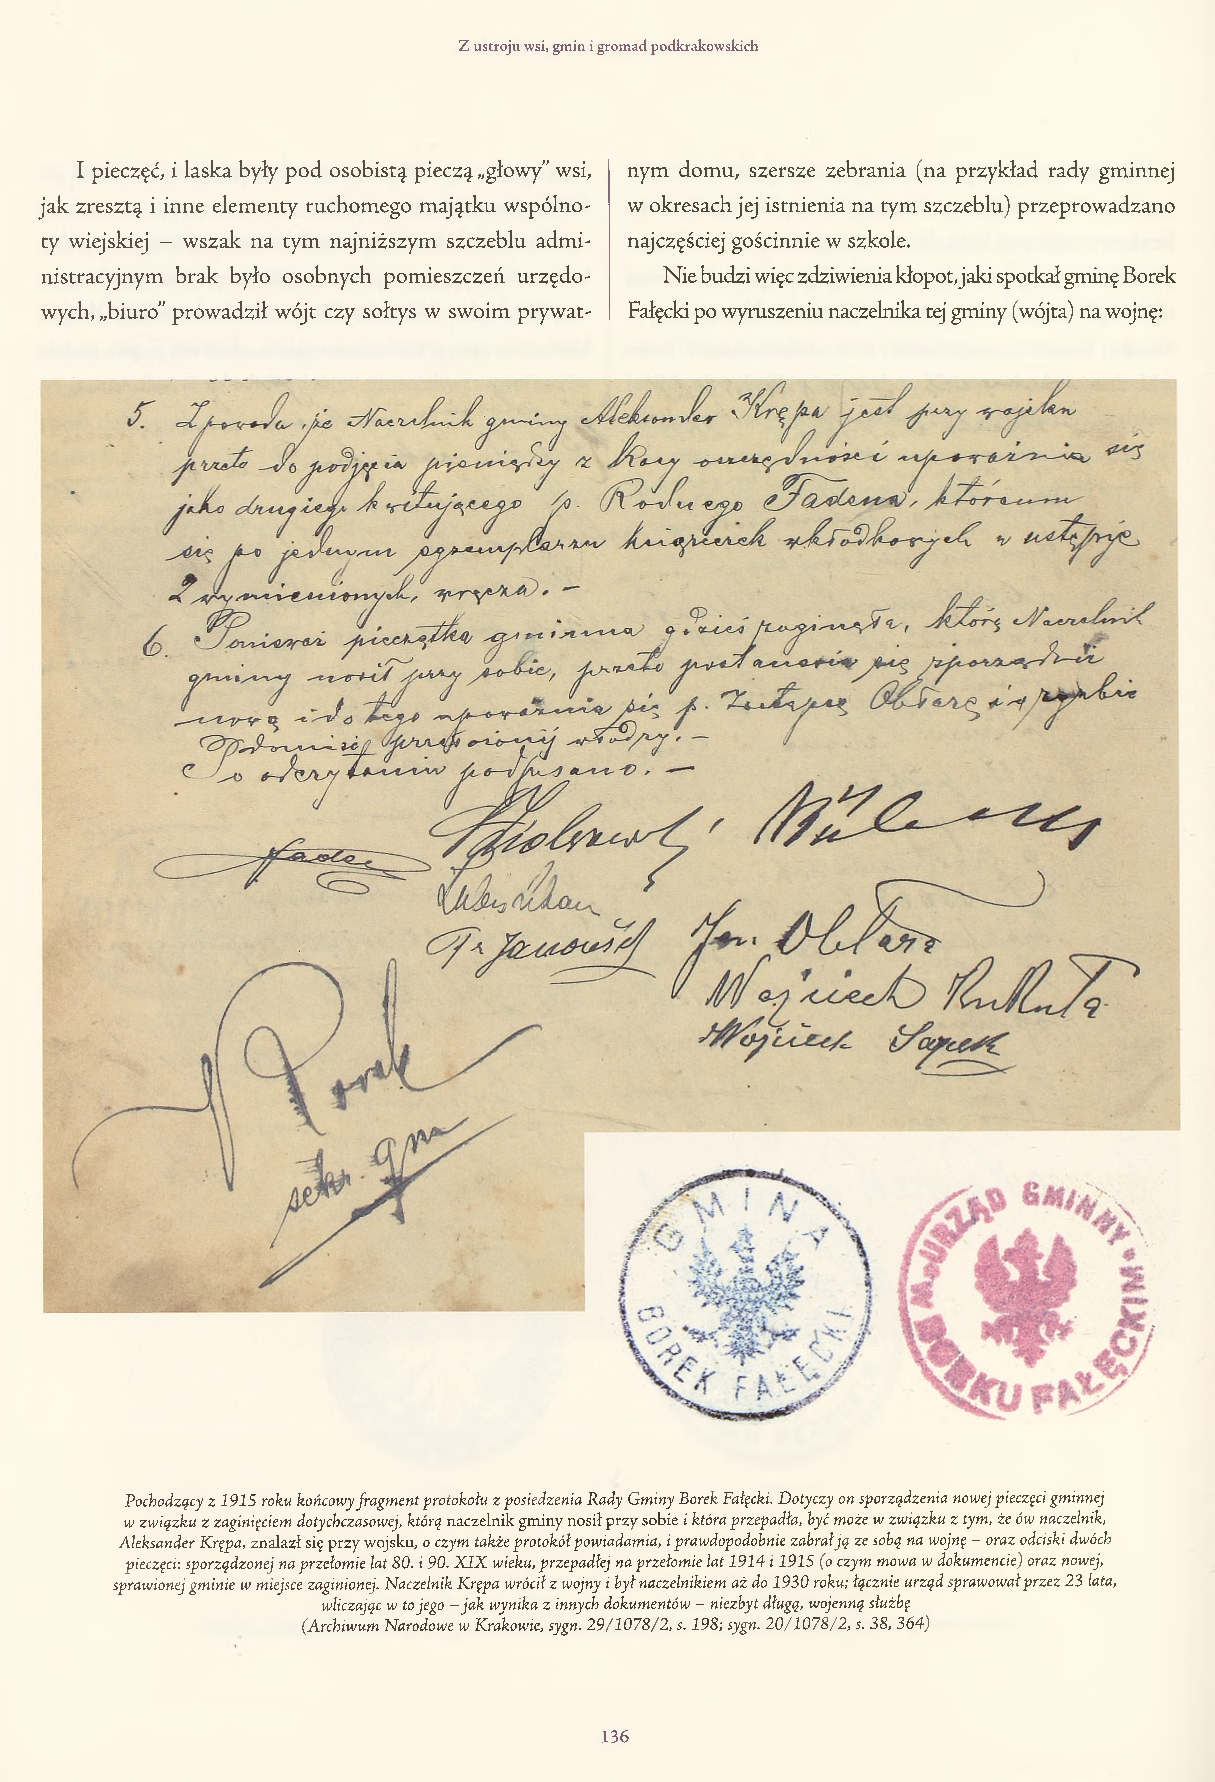 Z ustroju wsi, gmin i gromad podkrakowskich
I pieczęć, i laska były pod osobistą pieczą „głowy” wsi,
jak zresztą i inne elementy ruchomego majątku wspólno-
ty wiejskiej – wszak na tym najniższym szczeblu admi-
nistracyjnym brak było osobnych pomieszczeń urzędo-
wych, „biuro” prowadził wójt czy sołtys w swoim prywat-
nym domu, szersze zebrania (na przykład rady gminnej
w okresach jej istnienia na tym szczeblu) przeprowadzano
najczęściej gościnnie w szkole.
Nie budzi więc zdziwienia kłopot, jaki spotkał gminę Borek
Fałęcki po wyruszeniu naczelnika tej gminy (wójta) na wojnę:
5. Z powodu, że Naczelnik gminy Aleksander Krępa jest przy wojsku
przeto do podjęcia pieniędzy z Kasy oszczędności upoważnia się
jako drugiego kwitującego p. Radnego Fadena, któremu
się po jednym egzemplarzu książeczek wkładkowych w ustępie
2 wymienionych, wręcza. –
6. Ponieważ pieczątka gminna gdzieś zaginęła, którą Naczelnik
gminy nosił przy sobie, przeto postanawia się sporządzić
nową i do tego upoważnia się p. Zastępcę Obtarę
przełożonej władzy. –
Po odczytaniu podpisano. –
Faden
Fr Janowski
Jan Obtara
Wojciech Kukuła
Wojciech Sapek
Porak
sekr. gm
GMINA
BOREK FAŁĘCKI
URZĄD GMINNY
W BORKU FAŁĘCKIM
Pochodzący z 1915 roku końcowy fragment protokołu z posiedzenia Rady Gminy Borek Fałęcki. Dotyczy on sporządzenia nowej pieczęci gminnej
w związku z zaginięciem dotychczasowej, którą naczelnik gminy nosił przy sobie i która przepadła, być może w związku z tym, że ów naczelnik,
Aleksander Krępa, znalazł się przy wojsku, o czym także protokół powiadamia, i prawdopodobnie zabrał ją ze sobą na wojnę – oraz odciski dwóch
pieczęci: sporządzonej na przełomie lat 80. i 90. XIX wieku, przepadłej na przełomie lat 1914 i 1915 (o czym mowa w dokumencie) oraz nowej,
sprawionej gminie w miejsce zaginionej. Naczelnik Krępa wrócił z wojny i był naczelnikiem aż do 1930 roku; łącznie urząd sprawował przez 23 lata,
wliczając w to jego – jak wynika z innych dokumentów – niezbyt długą, wojenną służbę
(Archiwum Narodowe w Krakowie, sygn. 29/1078/2, s. 198; sygn. 20/1078/2, s. 38, 364)
136